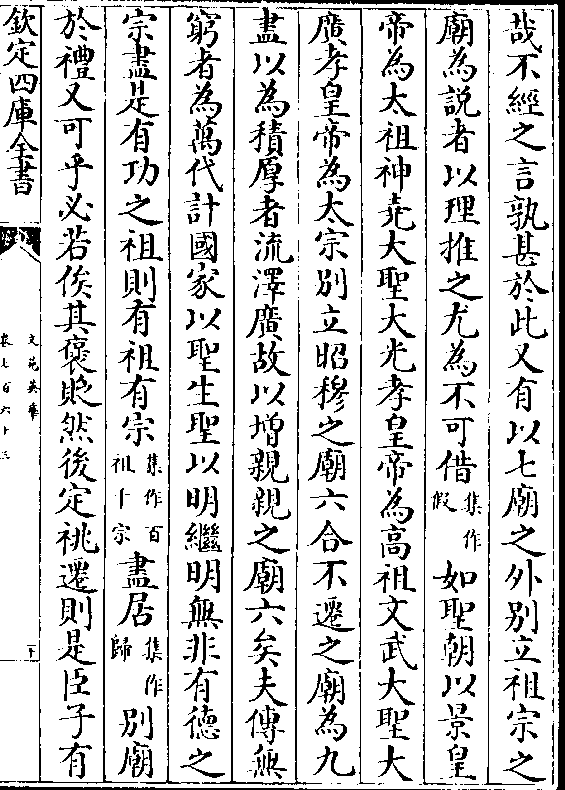 哉不經之言孰甚於此又有以七廟之外别立祖宗之
廟為説者以理推之尤為不可借集作假如聖朝以景皇
帝為太祖神堯大聖大光孝皇帝為高祖文武大聖大
廣孝皇帝為太宗别立昭穆之廟六合不遷之廟為九
盡以為積厚者流澤廣故以增親親之廟六矣夫傳無
窮者為萬代計國家以聖生聖以明繼明無非有德之
宗盡是有功之祖則有祖有宗集作百祖十宗盡居集作歸别廟
於禮又可乎必若俟其褒貶然後定祧遷則是臣子有
欽定四庫全書
文苑英華
卷七百六十三